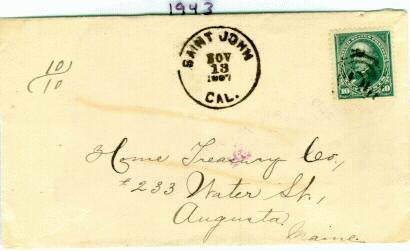 1943
SAINT JOHN
NOV
13
1897
CAL.
10
10
10 10
Home Treasury Co.,
#233 Water St.,
Augusta
Maine.